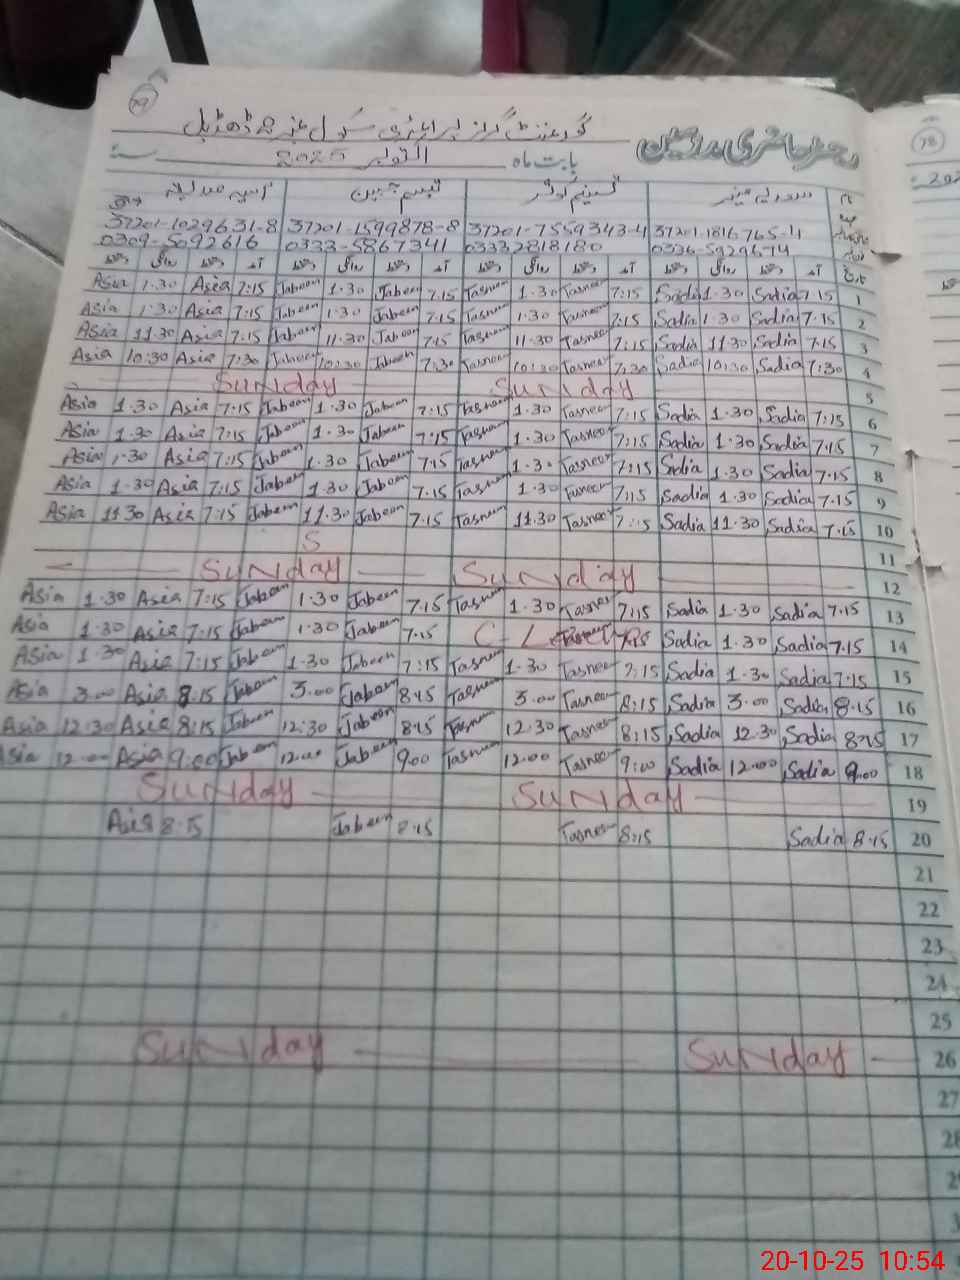 79
گورنمنٹ گرلز پرائمری سکول نمبر 2 ڈھڈیال
رجسٹر حاضری مدرسین
بابت ماہ اکتوبر 2025 سنہ
سعدیہ منیر تسنیم کوثر تبسم جبین آسیہ
37201-1029631-8 37201-1599878-8 37201-7559343-4 37201-1816765-4
0309-5092616 0333-5867341 03332818180 0336-5929674
تاریخ آمد دستخط روانگی دستخط آمد دستخط روانگی دستخط آمد دستخط روانگی دستخط آمد دستخط روانگی دستخط
Asia 1.30 Asia 7:15 Jabeen 1.30 Jabeen 7.15 Tasneem 1.30 Tasneem 7:15 Sadia 1.30 Sadia 7.15 1
Asia 1.30 Asia 7:15 Jabeen 1.30 Jabeen 7.15 Tasneem 1.30 Tasneem 7:15 Sadia 1.30 Sadia 7.15 2
Asia 11.30 Asia 7:15 Jabeen 11.30 Jabeen 7.15 Tasneem 11.30 Tasneem 7:15 Sadia 11.30 Sadia 7.15 3
Asia 10:30 Asia 7:30 Jabeen 10:30 Jabeen 7:30 Tasneem 10:30 Tasneem 7:30 Sadia 10:30 Sadia 7:30 4
Sunday Sunday 5
Asia 1.30 Asia 7:15 Jabeen 1.30 Jabeen 7:15 Tasneem 1.30 Tasneem 7:15 Sadia 1.30 Sadia 7:15 6
Asia 1.30 Asia 7:15 Jabeen 1.30 Jabeen 7:15 Tasneem 1.30 Tasneem 7:15 Sadia 1.30 Sadia 7.15 7
Asia 1.30 Asia 7:15 Jabeen 1.30 Jabeen 7.15 Tasneem 1.30 Tasneem 7:15 Sadia 1.30 Sadia 7.15 8
Asia 1.30 Asia 7:15 Jabeen 1.30 Jabeen 7.15 Tasneem 1.30 Tasneem 7:15 Sadia 1.30 Sadia 7.15 9
Asia 11.30 Asia 7:15 Jabeen 11.30 Jabeen 7.15 Tasneem 11.30 Tasneem 7:15 Sadia 11.30 Sadia 7.15 10
S 11
Sunday Sunday 12
Asia 1.30 Asia 7:15 Jabeen 1.30 Jabeen 7.15 Tasneem 1.30 Tasneem 7:15 Sadia 1.30 Sadia 7.15 13
Asia 1.30 Asia 7:15 Jabeen 1.30 Jabeen 7.15 C-L Sadia 1.30 Sadia 7.15 14
Asia 1.30 Asia 7:15 Jabeen 1.30 Jabeen 7:15 Tasneem 1.30 Tasneem 7:15 Sadia 1.30 Sadia 7:15 15
Asia 3.00 Asia 8:15 Jabeen 3.00 Jabeen 8:15 Tasneem 3.00 Tasneem 8:15 Sadia 3.00 Sadia 8.15 16
Asia 12.30 Asia 8:15 Jabeen 12:30 Jabeen 8:15 Tasneem 12.30 Tasneem 8:15 Sadia 12.30 Sadia 8:15 17
Asia 12.00 Asia 9:00 Jabeen 12.00 Jabeen 9.00 Tasneem 12.00 Tasneem 9:00 Sadia 12.00 Sadia 9.00 18
Sunday Sunday 19
Asia 8.15 Jabeen 8.15 Tasneem 8:15 Sadia 8.15 20
21
22
23
24
25
Sunday Sunday 26
27
28
78
20-10-25 10:54